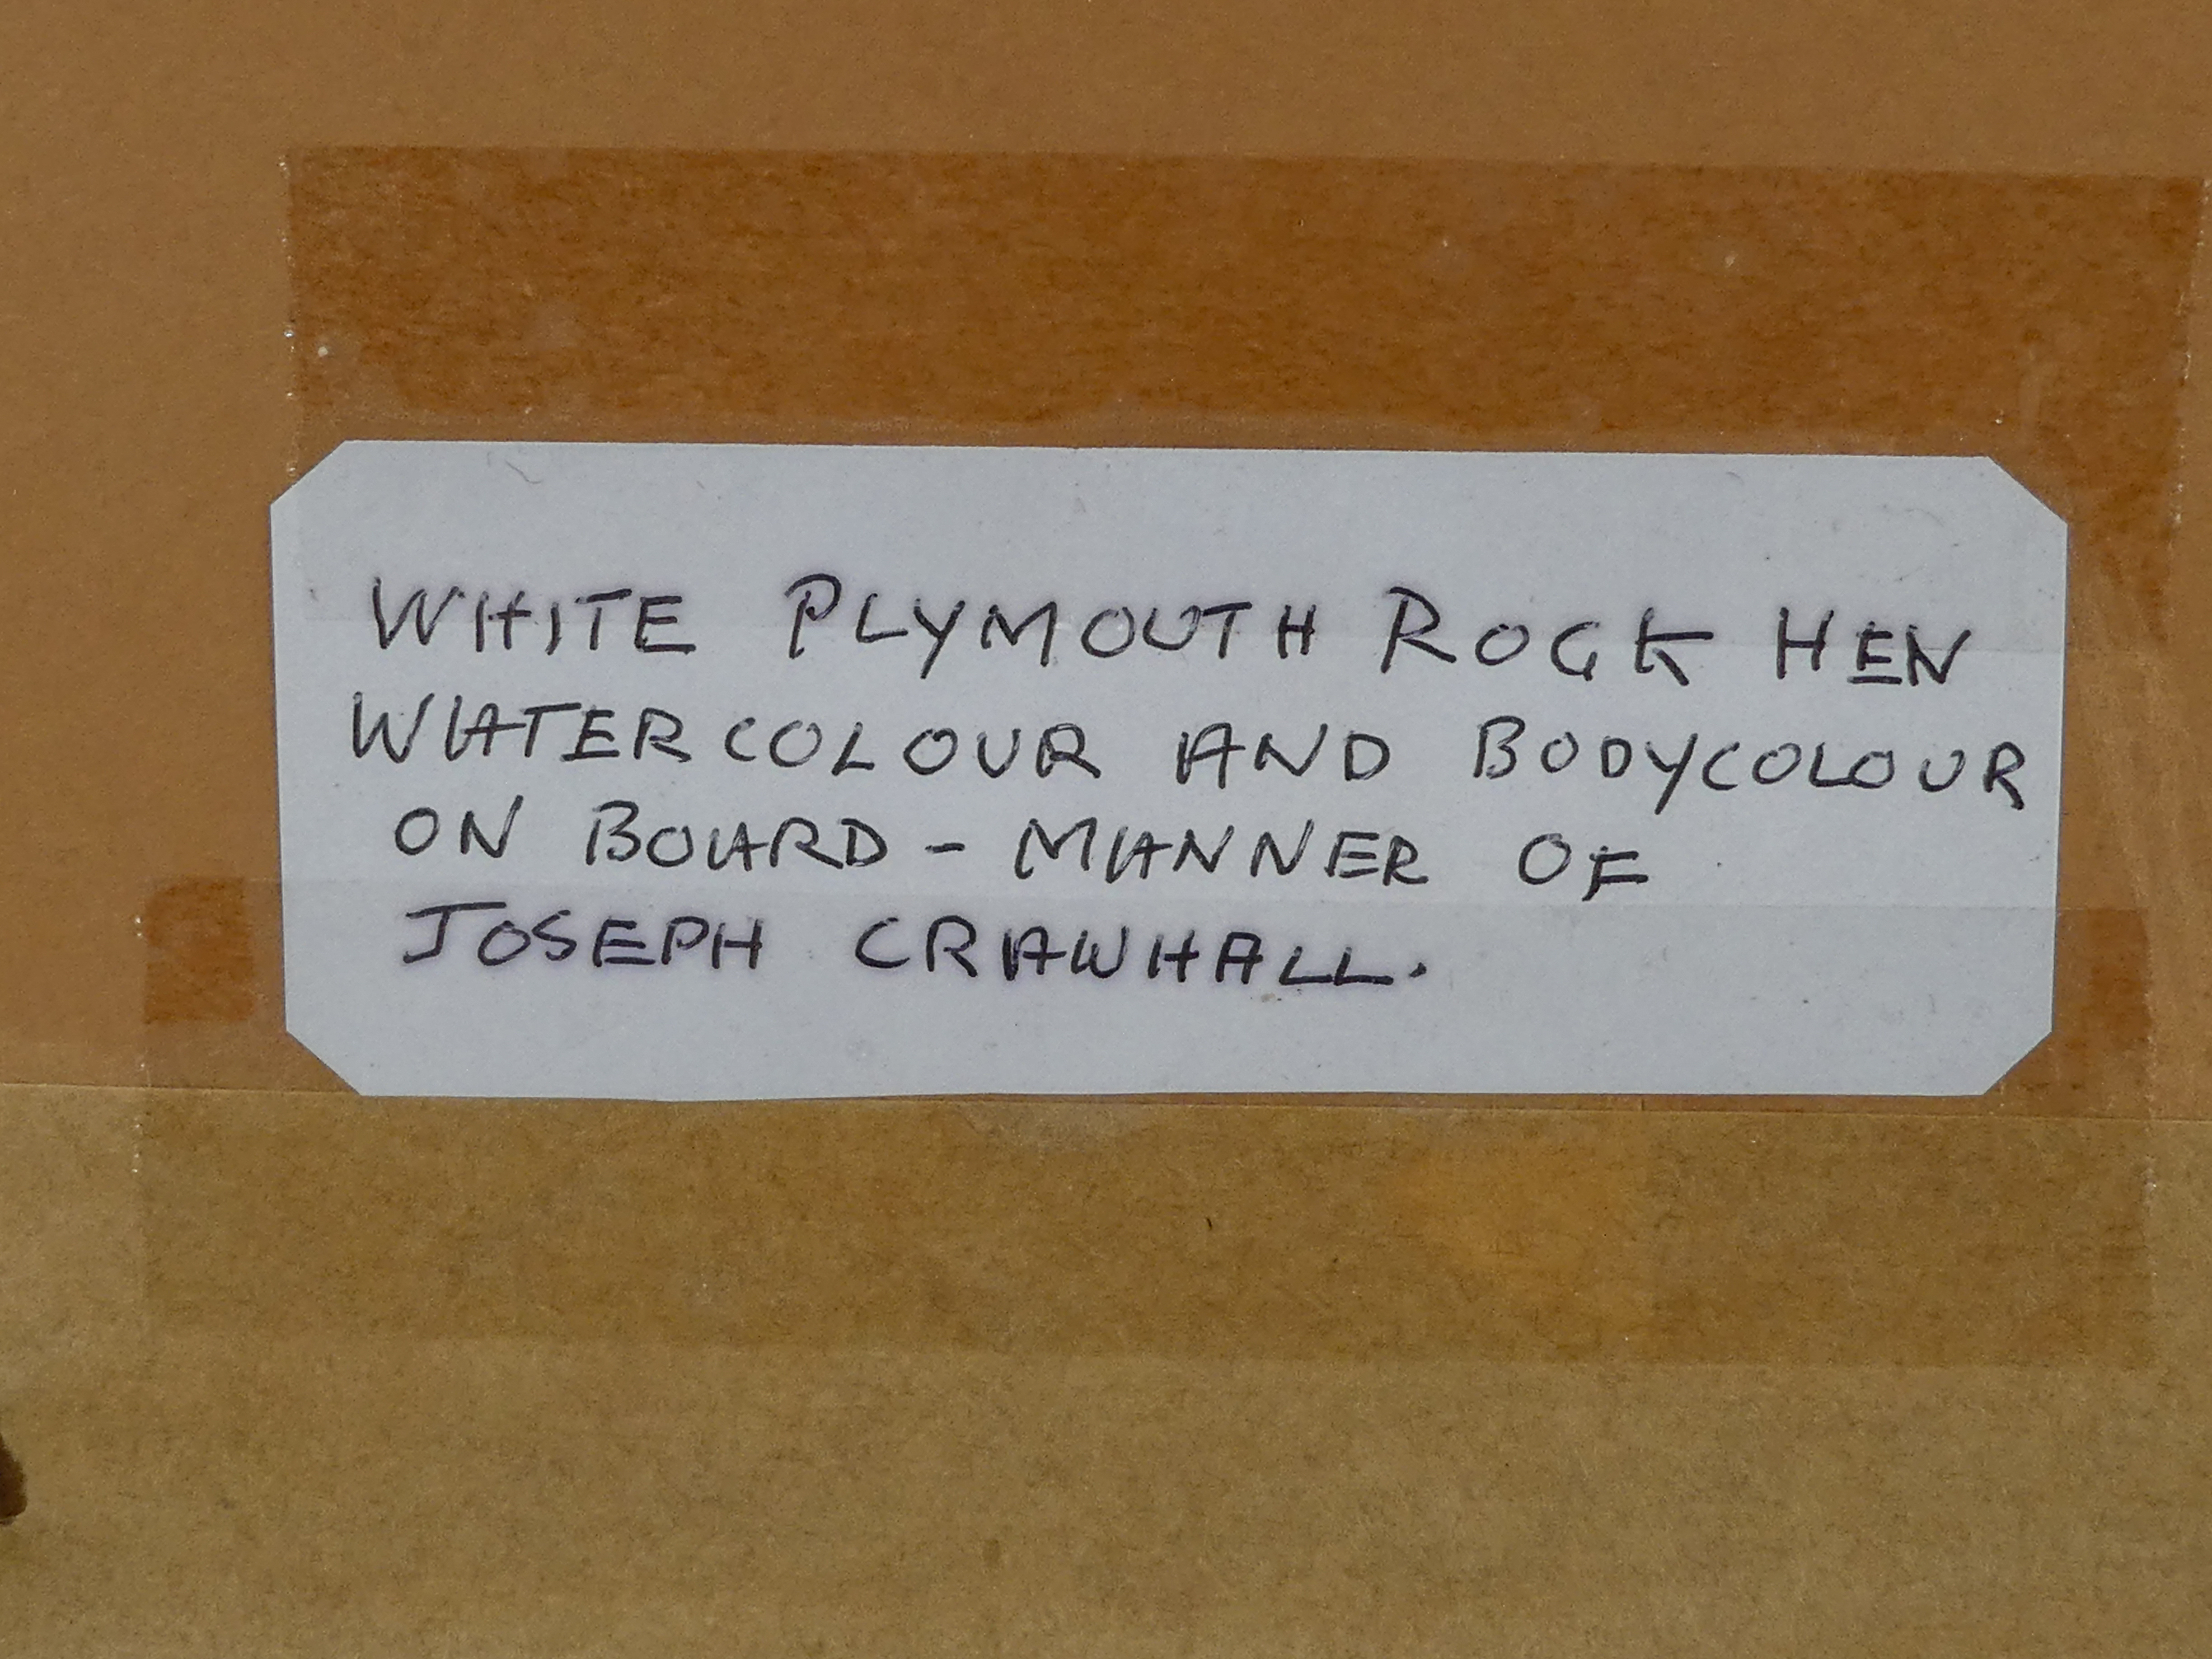 WHITE PLYMOUTH ROCK HEN
WATERCOLOUR AND BODYCOLOUR
ON BOARD - MANNER OF
JOSEPH CRAWHALL.